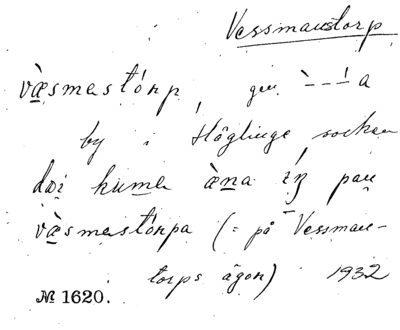 Vessmanstorp
væ̀smastórp, gen. `---́a
by i Höglinge socken
dæi kuma æ̀na íŋ pau
væ̀smastórpa (= på Vessman-
torps ägor) 1932
№ 1620.